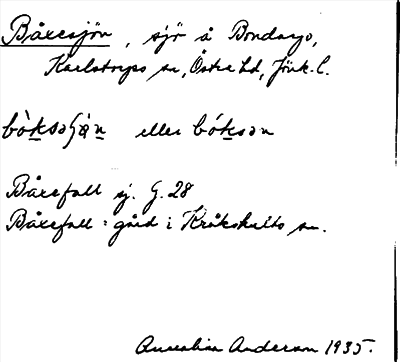 Båxesjön, sjö å Bondarp,
Karlstorps sn, Östra hd, Jönk. l.
bòksəʃö̀n eller bóksən
Båxefall sj. G. 28
Båxefall = gård i Kråkshults sn.
Anderson 1935.